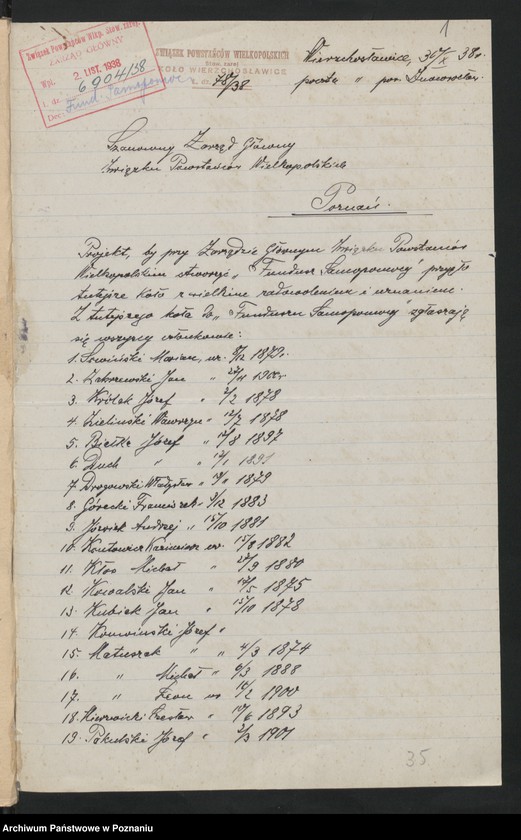 1
Związek Powstańców Wlkp. Stow. zarej.
ZARZĄD GŁÓWNY
Wpł. 2. LIST. 1938
6904/38
Fund Samopomocy
ZWIĄZEK POWSTAŃCÓW WIELKOPOLSKICH
Stow. zarej.
KOŁO WIERZCHOSŁAWICE
L. dz. 78/38
Wierzchosławice, 30/X 38r.
poczta " pow. Inowrocław.
Szanowny Zarząd Główny
Związku Powstańców Wielkopolskich
Poznań.
Projekt, by przy Zarządzie Głównym Związku Powstańców
Wielkopolskich stworzyć „Fundusz Samopomocy" przyjęło
tutejsze Koło z wielkim zadowoleniem i uznaniem.
Z tutejszego koła do „Funduszu Samopomocy" zgłaszają
się wszyscy członkowie:
1. Marian, ur. 1879r.
2. Zakrzewski Jan "
3. Królak Józef " 2/2 1878
4. Zieliński Wawrzyn " 12/7 1878
5. Bielke Józef " 12/8 1897
6. Duch " " 12/1 1891
7. Drogowski Władysław " 1879
8. Górecki Franciszek " 9/12 1883
9. Andrzej " 16/10 1881
10. Kantowicz Kazimierz ur. 15/8 1882
11. Kłos Michał " 29/9 1880
12. Kowalski Jan " 14/5 1875
13. Kubiak Jan " 15/10 1878
14. Józef "
15. Matuszak " " 4/3 1874
16. " Michał " 9/3 1888
17. " Leon ur. 14/2 1900
18. Czesław " 14/6 1893
19. Pakulski Józef " 2/3 1901
35
Archiwum Państwowe w Poznaniu